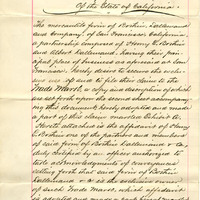 Of the State of California.
The mercantile firm of Bothin, Dallemand
and Company, of San Francisco California
a partnership composed of Henry E. Bothin
and Albert Dallemand, having their prin-
cipal place of business as aforesaid at San
Francisco. hereby desire to secure the exclus-
ive use of and to file their claim to the
Trade Mark, a copy and description of which
are set forth upon the second sheet accompany-
ing this document; hereby adopted and made
a part of this claim marked Exhibit A.
Hereto attached is the affidavit of Henry
E. Bothin one of the partners and members
of said firm of Bothin Dallemand & Co
duly certified by an officer authorized to
take acknowledgements of conveyances
setting forth that said firm of Bothin
Dallemand & Co is the exclusive owner
of such Trade Mark, which affidavit
is adopted and made a part hereof marked